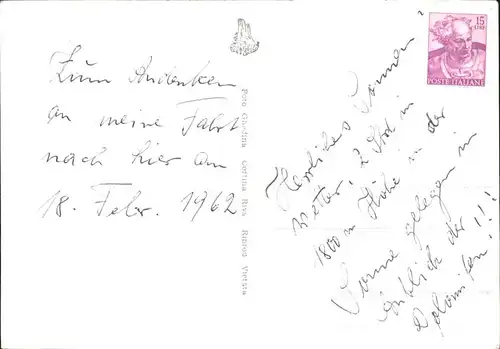 Zum Andenken
an meine Fahrt
nach hier am
18. Febr. 1962
Foto Ghedina Cortina Riva Riprod Vietata
Herrliches Sonnen
wetter! 2 Std in
1800 m Höhe in der
Sonne gelegen im
Anblick der
Dolomiten!!!
15
LIRE
POSTE ITALIANE